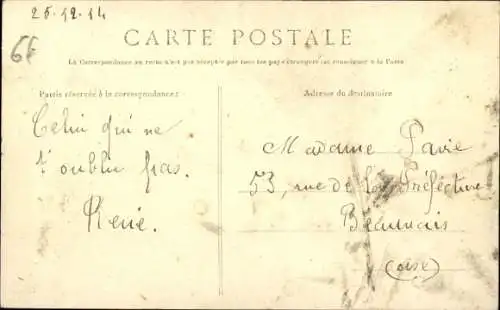 25.12.14
6F
CARTE POSTALE
La Correspondance au recto n'est pas acceptée par tous les pays étrangers (se renseigner à la Poste
Partie réservée à la correspondance:
Adresse du destinataire
Celui qui ne
t'oublie pas.
René.
Madame Pavie
53, rue de la Préfecture
Beauvais
(oise)